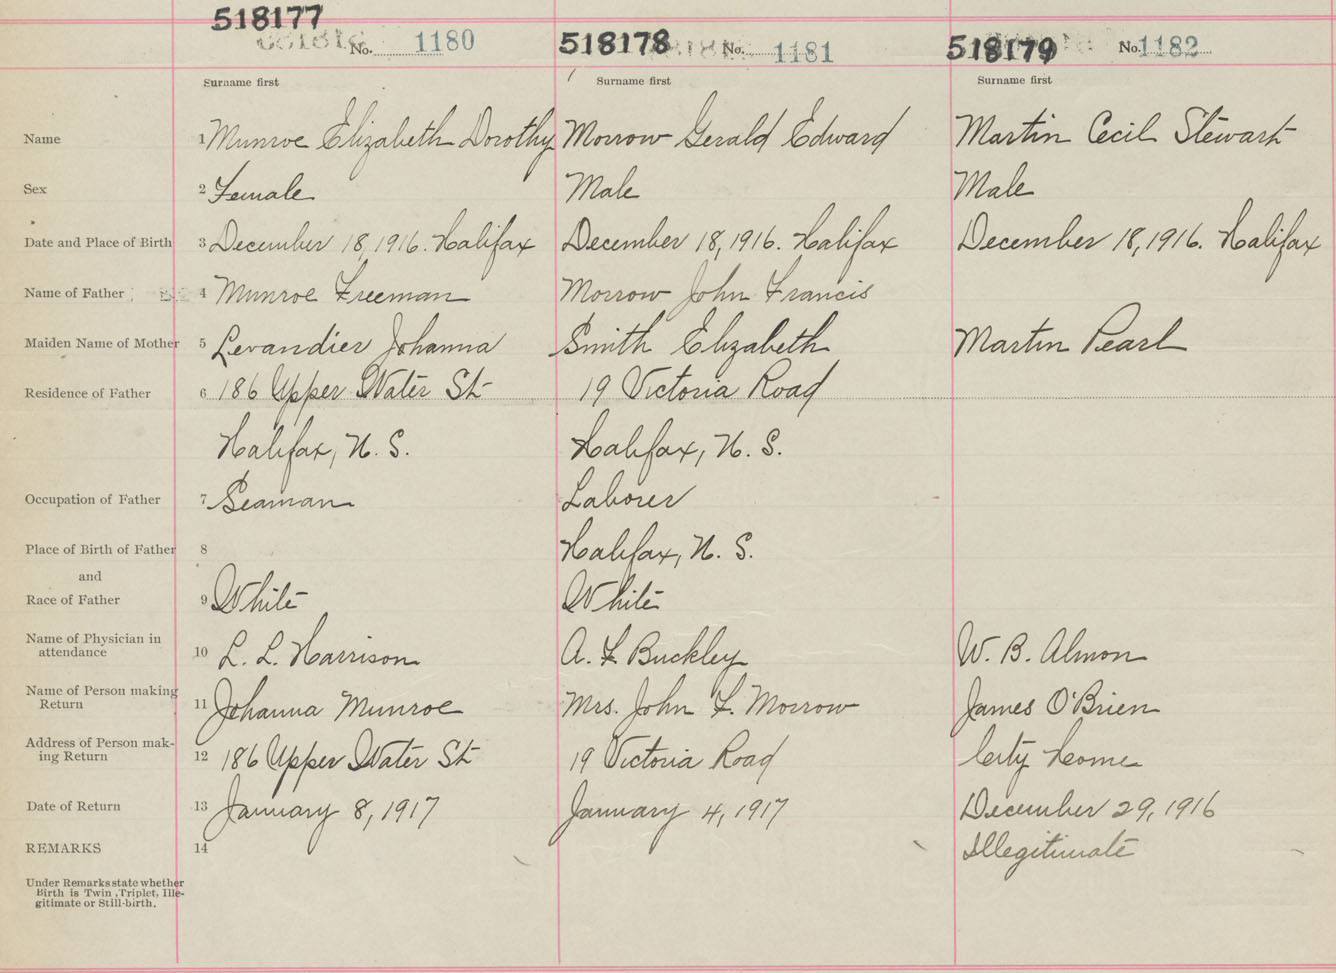 518177 518178 518179
No. 1180 No. 1181 No. 1182
Surname first Surname first Surname first
Name 1 Munroe Elizabeth Dorothy Morrow Gerald Edward Martin Cecil Stewart
Sex 2 Female Male Male
Date and Place of Birth 3 December 18, 1916. Halifax December 18, 1916. Halifax December 18, 1916. Halifax
Name of Father 4 Munroe Freeman Morrow John Francis
Maiden Name of Mother 5 Levandier Johanna Smith Elizabeth Martin Pearl
Residence of Father 6 186 Upper Water St 19 Victoria Road
Halifax, N. S. Halifax, N. S.
Occupation of Father 7 Seaman Laborer
Place of Birth of Father 8 Halifax, N. S.
and
Race of Father 9 White White
Name of Physician in
attendance 10 L. L. Harrison A. F Buckley W. B. Almon
Name of Person making
Return 11 Johanna Munroe Mrs. John F. Morrow James O'Brien
Address of Person mak-
ing Return 12 186 Upper Water St 19 Victoria Road City Home
Date of Return 13 January 8, 1917 January 4, 1917 December 29, 1916
REMARKS 14 Illegitimate
Under Remarks state whether
Birth is Twin, Triplet, Ille-
gitimate or Still-birth.